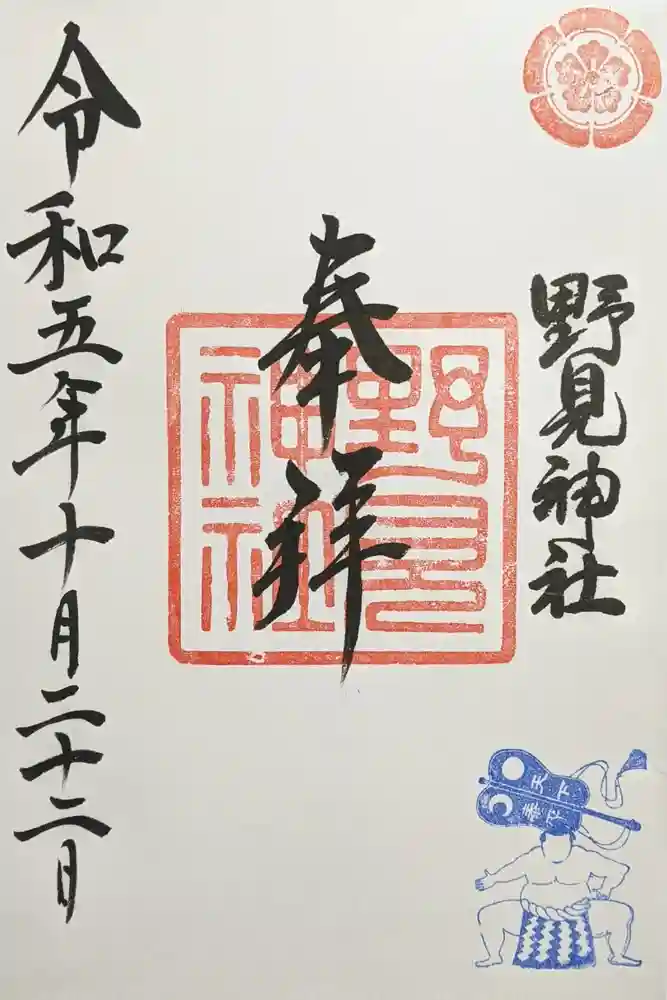 野見神社
奉拝
野見
神社
令和五年十月二十二日
天下
泰平